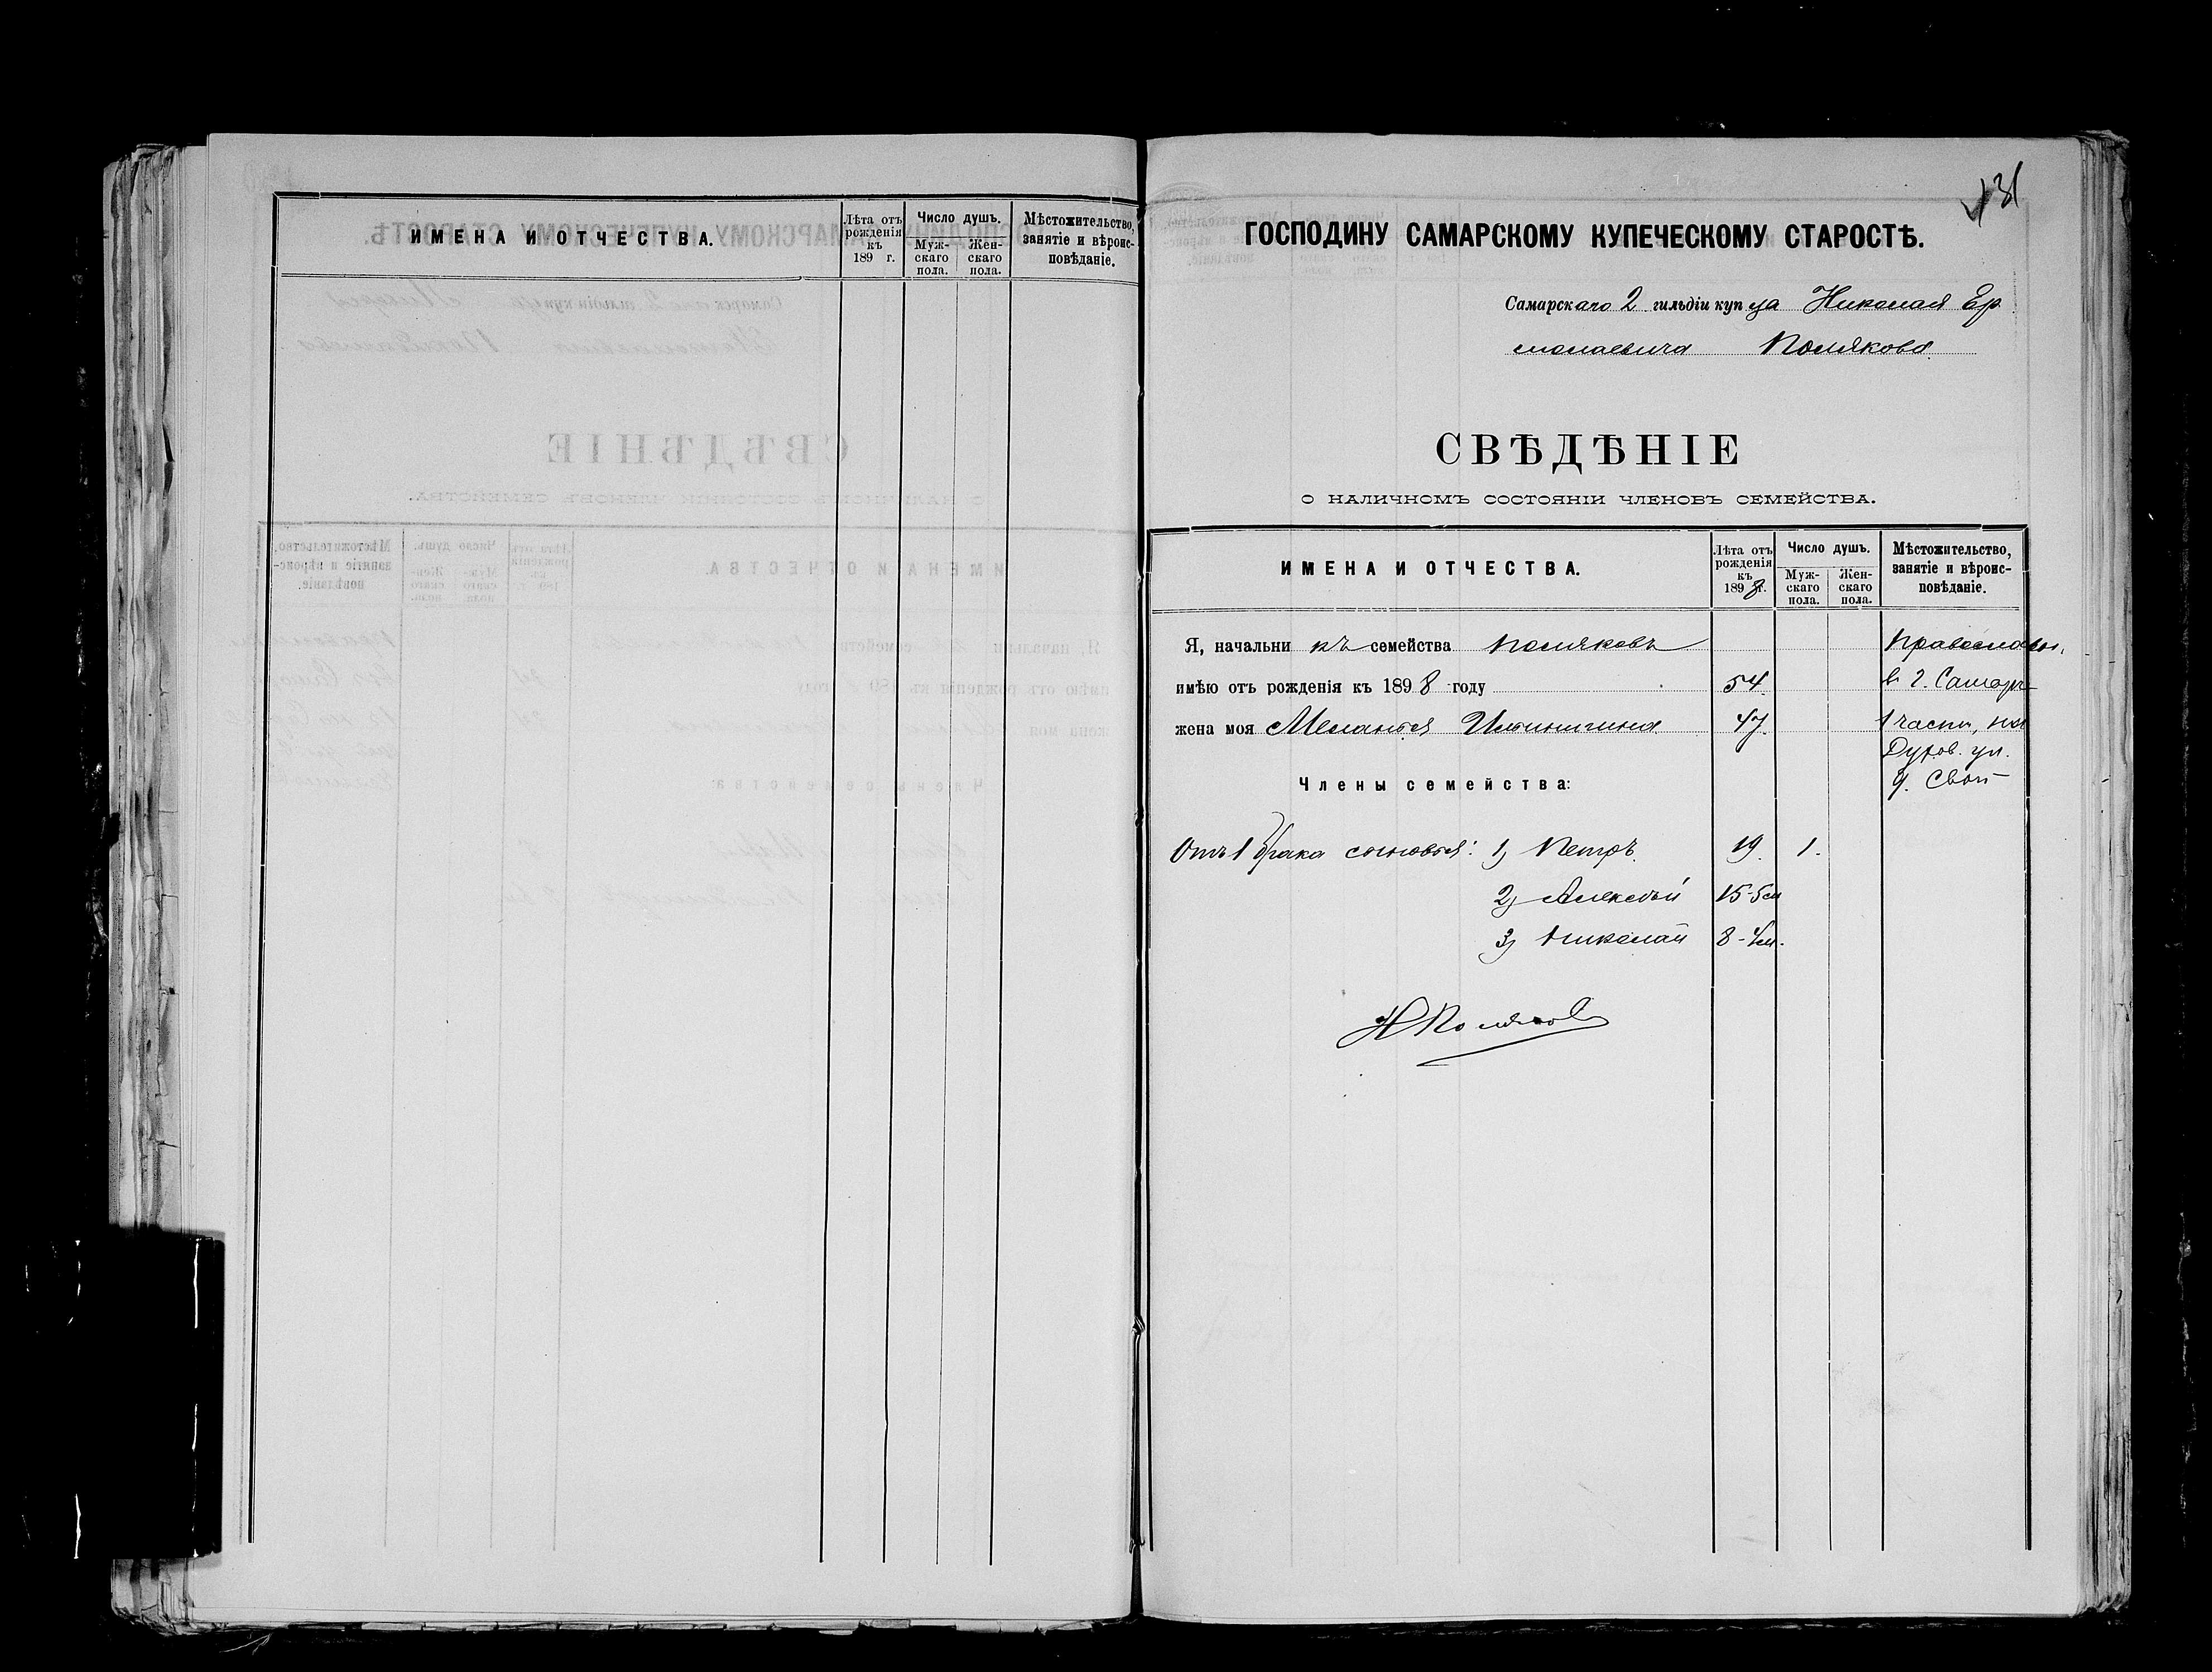 ИМЕНА И ОТЧЕСТВА.
Лѣта отъ рожденія къ 189 г.
Число душъ.
Муж-скаго пола.
Жен-скаго пола.
Мѣстожительство, занятіе и вѣроис-повѣданіе.
131
ГОСПОДИНУ САМАРСКОМУ КУПЕЧЕСКОМУ СТАРОСТѢ.
Самарскаго 2 гильдіи купца Николая Ер
молаевича Полякова
СВѢДѢНІЕ
О НАЛИЧНОМЪ СОСТОЯНІИ ЧЛЕНОВЪ СЕМЕЙСТВА.
ИМЕНА И ОТЧЕСТВА.
Лѣта отъ рожденія къ 1898 г.
Число душъ.
Муж-скаго пола.
Жен-скаго пола.
Мѣстожительство, занятіе и вѣроис-повѣданіе.
Я, начальникъ семейства Поляковъ Православн.
имѣю отъ рожденія къ 1898 году 54 в г. Самарѣ
жена моя 47. 1 части, на
Духов. ул.
Члены семейства: д. свой
Отъ 1 брака сыновья: 1) Петръ. 19. 1.
2) Алексѣй 15-5 м
3) Николай 8-4 м.
Н Поляковъ